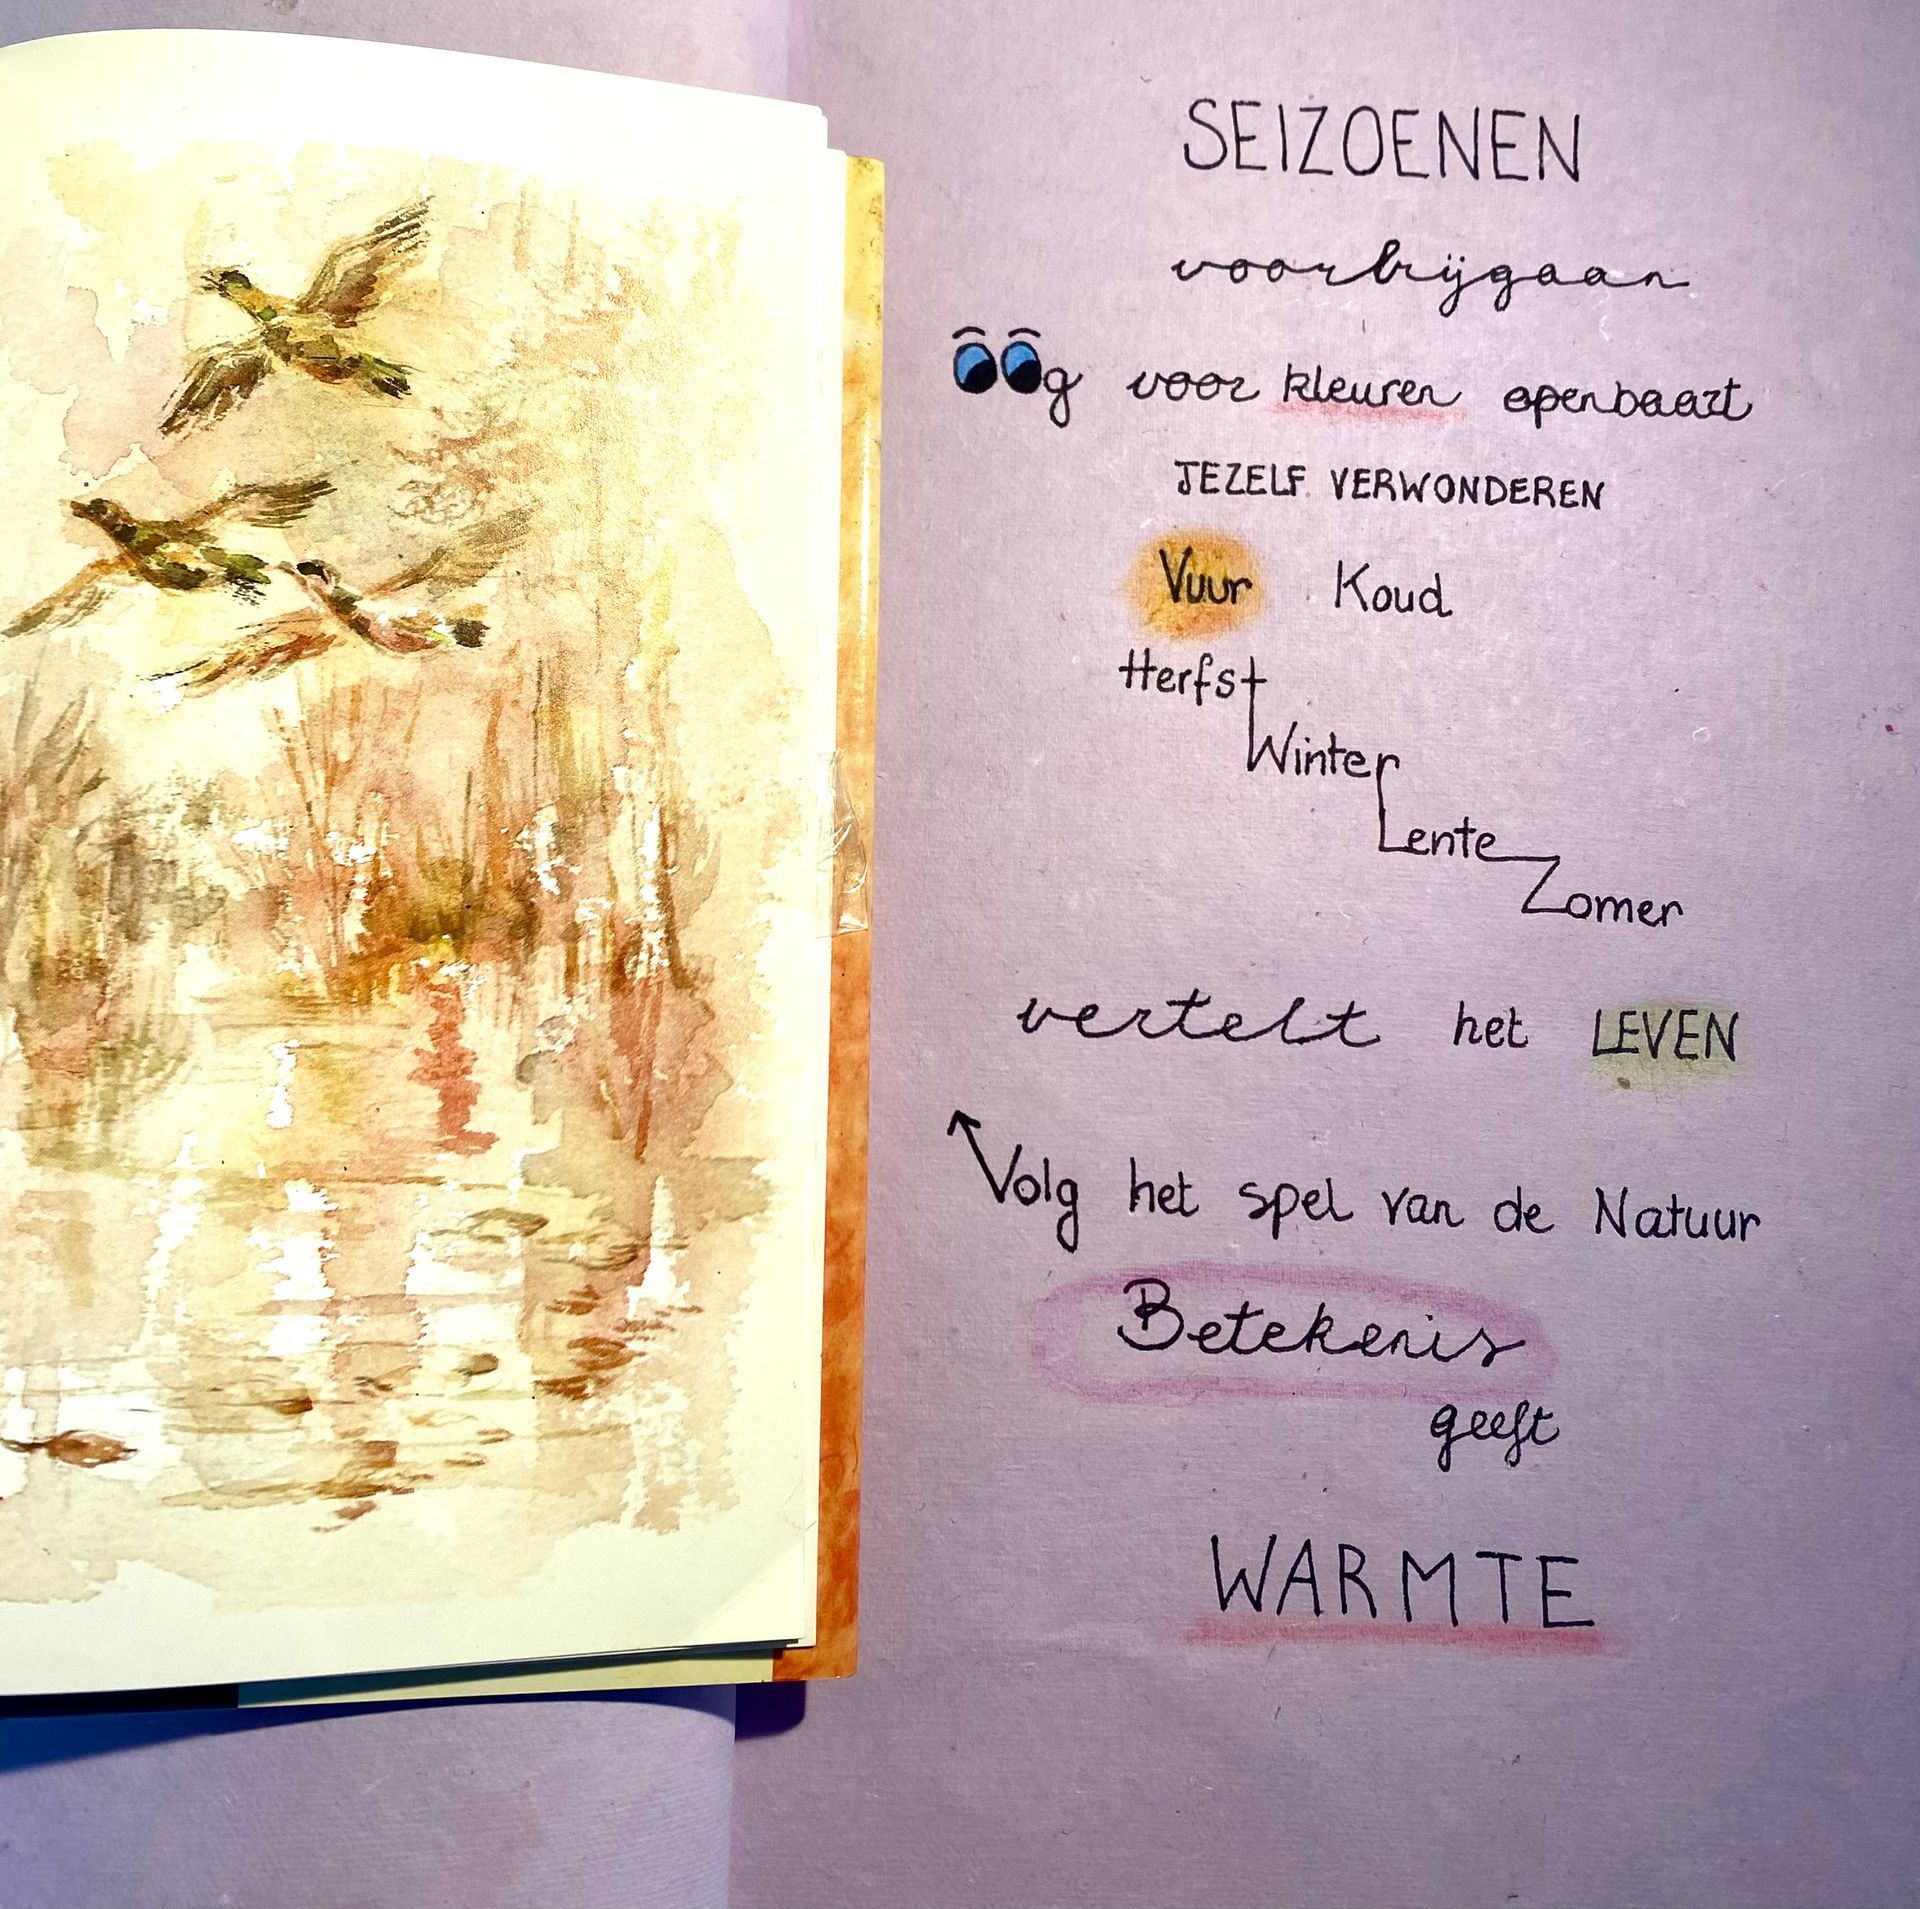 SEIZOENEN
voorbijgaan
oog voor kleuren openbaart
JEZELF VERWONDEREN
Vuur Koud
Herfst
Winter
Lente
Zomer
vertelt het LEVEN
Volg het spel van de Natuur
Betekenis
geeft
WARMTE